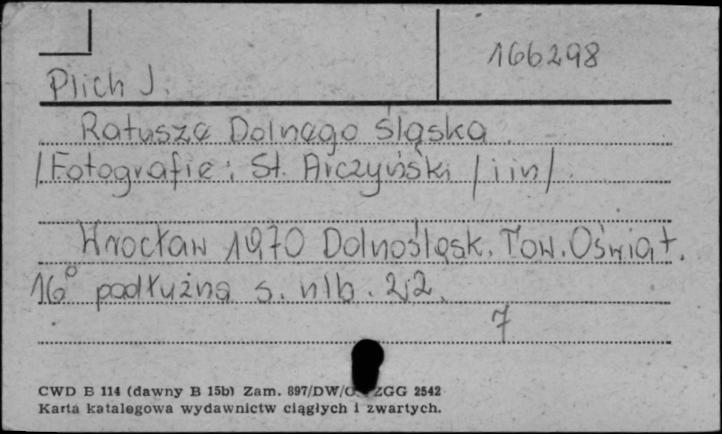 166298
Plich J.
Ratusze Dolnego Śląska.
/Fotografie: St. Arczyński /i in/.
Wrocław 1970 Dolnośląsk. Tow. Oświat.
16° podłużna s. nlb. 22.
7
CWD B 114 (dawny B 15b) Zam. 897/DW/ ZGG 2542
Karta katalogowa wydawnictw ciągłych i zwartych.